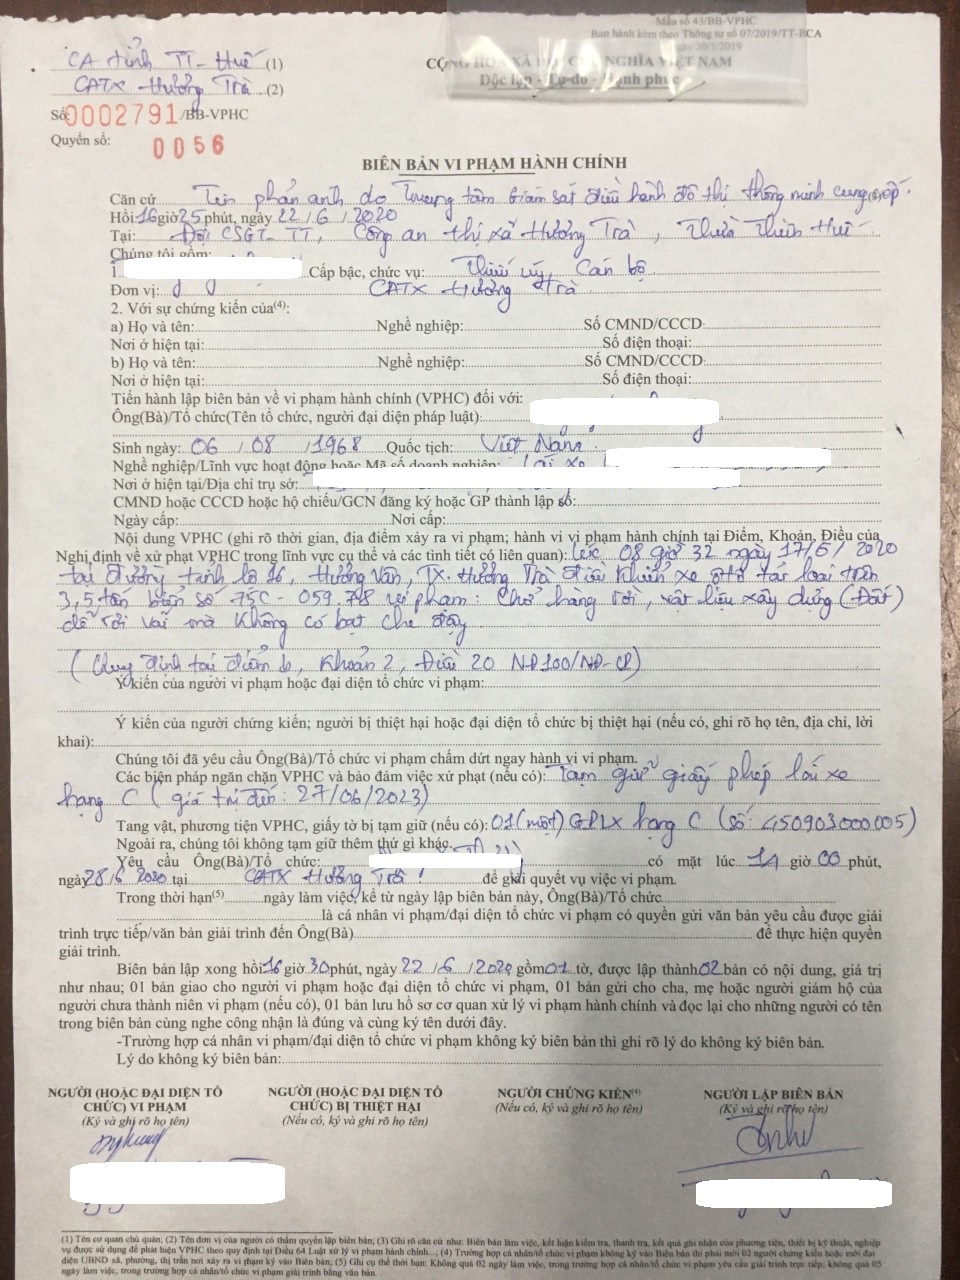 Mẫu số 43/BB-VPHC
Ban hành kèm theo Thông tư số 07/2019/TT-BCA
ngày 20/3/2019
CA tỉnh TT-Huế (1)
CATX Hương Trà (2)
CỘNG HÒA XÃ HỘI CHỦ NGHĨA VIỆT NAM
Độc lập - Tự do - Hạnh phúc
Số: 0002791/BB-VPHC
Quyển số: 0056
BIÊN BẢN VI PHẠM HÀNH CHÍNH
Căn cứ Tin phản ánh do Trung tâm Giám sát điều hành đô thị thông minh cung cấp.
Hồi 16 giờ 25 phút, ngày 22/6/2020
Tại: Đội CSGT-TT, Công an thị xã Hương Trà, Thừa Thiên Huế.
Chúng tôi gồm:
1. Cấp bậc, chức vụ: Thiếu úy, Cán bộ
Đơn vị: CATX Hương Trà
2. Với sự chứng kiến của(4):
a) Họ và tên: Nghề nghiệp: Số CMND/CCCD:
Nơi ở hiện tại: Số điện thoại:
b) Họ và tên: Nghề nghiệp: Số CMND/CCCD:
Nơi ở hiện tại: Số điện thoại:
Tiến hành lập biên bản về vi phạm hành chính (VPHC) đối với:
Ông(Bà)/Tổ chức(Tên tổ chức, người đại diện pháp luật):
Sinh ngày: 06/08/1968 Quốc tịch: Việt Nam.
Nghề nghiệp/Lĩnh vực hoạt động hoặc Mã số doanh nghiệp: Lái xe
Nơi ở hiện tại/Địa chỉ trụ sở:
CMND hoặc CCCD hoặc hộ chiếu/GCN đăng ký hoặc GP thành lập số:
Ngày cấp: Nơi cấp:
Nội dung VPHC (ghi rõ thời gian, địa điểm xảy ra vi phạm; hành vi vi phạm hành chính tại Điểm, Khoản, Điều của
Nghị định về xử phạt VPHC trong lĩnh vực cụ thể và các tình tiết có liên quan): Lúc 08 giờ 32 ngày 17/6/2020
tại đường tỉnh lộ 16, Hương Văn, TX. Hương Trà điều khiển xe ôtô tải loại trên
3,5 tấn biển số 75C-059.78 vi phạm: Chở hàng rời, vật liệu xây dựng (Đất)
dễ rơi vãi mà không có bạt che đậy
(Quy định tại điểm b, Khoản 2, Điều 20 NĐ100/NĐ-CP)
Ý kiến của người vi phạm hoặc đại diện tổ chức vi phạm:
Ý kiến của người chứng kiến; người bị thiệt hại hoặc đại diện tổ chức bị thiệt hại (nếu có, ghi rõ họ tên, địa chỉ, lời
khai):
Chúng tôi đã yêu cầu Ông(Bà)/Tổ chức vi phạm chấm dứt ngay hành vi vi phạm.
Các biện pháp ngăn chặn VPHC và bảo đảm việc xử phạt (nếu có): Tạm giữ giấy phép lái xe
hạng C (giá trị đến: 27/06/2023)
Tang vật, phương tiện VPHC, giấy tờ bị tạm giữ (nếu có): 01 (một) GPLX hạng C (số: 450903000005)
Ngoài ra, chúng tôi không tạm giữ thêm thứ gì khác.
Yêu cầu Ông(Bà)/Tổ chức: có mặt lúc 14 giờ 00 phút,
ngày 28/6/2020 tại CATX Hương Trà để giải quyết vụ việc vi phạm.
Trong thời hạn(5) ngày làm việc, kể từ ngày lập biên bản này, Ông(Bà)/Tổ chức
là cá nhân vi phạm/đại diện tổ chức vi phạm có quyền gửi văn bản yêu cầu được giải
trình trực tiếp/văn bản giải trình đến Ông(Bà) để thực hiện quyền
giải trình.
Biên bản lập xong hồi 16 giờ 30 phút, ngày 22/6/2020 gồm 01 tờ, được lập thành 02 bản có nội dung, giá trị
như nhau; 01 bản giao cho người vi phạm hoặc đại diện tổ chức vi phạm, 01 bản gửi cho cha, mẹ hoặc người giám hộ của
người chưa thành niên vi phạm (nếu có), 01 bản lưu hồ sơ cơ quan xử lý vi phạm hành chính và đọc lại cho những người có tên
trong biên bản cùng nghe công nhận là đúng và cùng ký tên dưới đây.
-Trường hợp cá nhân vi phạm/đại diện tổ chức vi phạm không ký biên bản thì ghi rõ lý do không ký biên bản.
Lý do không ký biên bản:
NGƯỜI (HOẶC ĐẠI DIỆN TỔ
CHỨC) VI PHẠM
(Ký và ghi rõ họ tên)
NGƯỜI (HOẶC ĐẠI DIỆN TỔ
CHỨC) BỊ THIỆT HẠI
(Nếu có, ký và ghi rõ họ tên)
NGƯỜI CHỨNG KIẾN(4)
(Nếu có, ký và ghi rõ họ tên)
NGƯỜI LẬP BIÊN BẢN
(Ký và ghi rõ họ tên)
(1) Tên cơ quan chủ quản; (2) Tên đơn vị của người có thẩm quyền lập biên bản; (3) Ghi rõ căn cứ như: Biên bản làm việc, kết luận kiểm tra, thanh tra, kết quả ghi nhận của phương tiện, thiết bị kỹ thuật, nghiệp
vụ được sử dụng để phát hiện VPHC theo quy định tại Điều 64 Luật xử lý vi phạm hành chính...; (4) Trường hợp cá nhân/tổ chức vi phạm không ký vào Biên bản thì phải mời 02 người chứng kiến hoặc mời đại
diện UBND xã, phường, thị trấn nơi xảy ra vi phạm ký vào Biên bản; (5) Ghi cụ thể thời hạn: Không quá 02 ngày làm việc, trong trường hợp cá nhân/tổ chức vi phạm yêu cầu giải trình trực tiếp, không quá 05
ngày làm việc, trong trường hợp cá nhân/tổ chức vi phạm giải trình bằng văn bản.